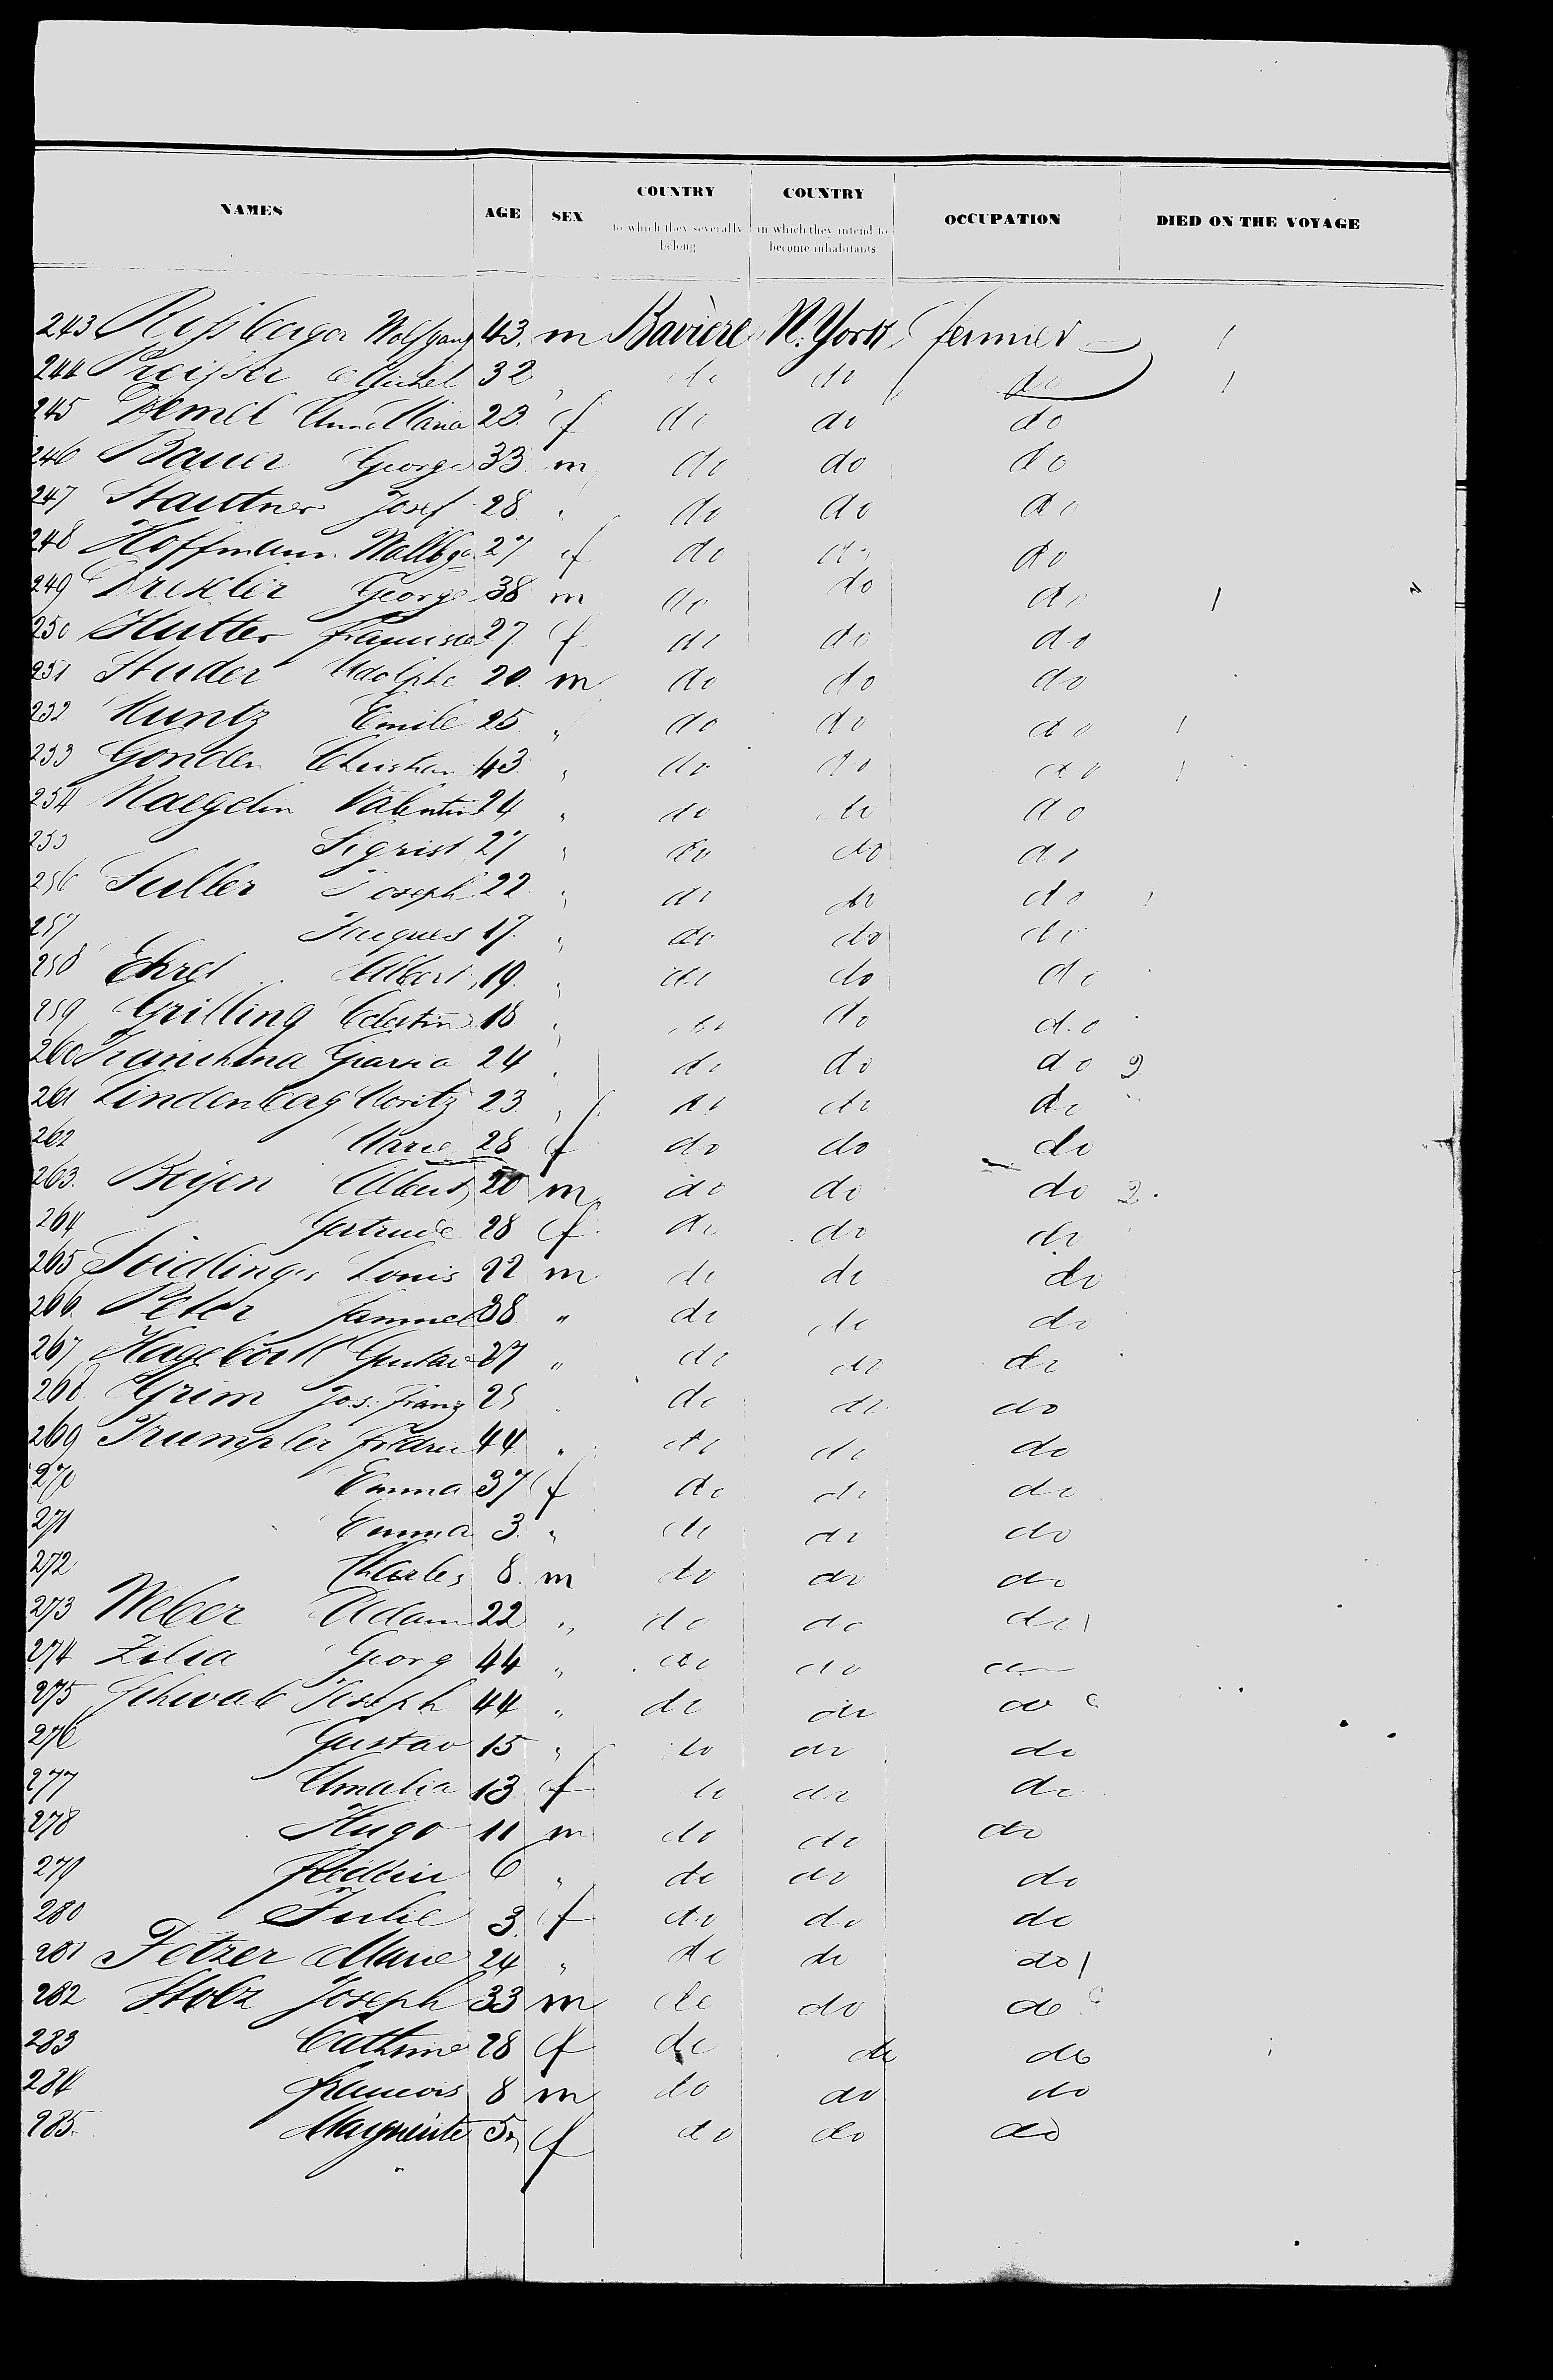 NAMES AGE SEX COUNTRY to which they severally belong COUNTRY in which they intend to become inhabitants OCCUPATION DIED ON THE VOYAGE
243 Wolfgang 43 m Bavière N. York fermier
244 Preisser Michel 32 " do do do
245 Demel Anna Maria 23 f do do do
246 Bauer George 33 m do do do
247 Stautner Josef 28 " do do do
248 Hoffmann Wallbga 27 f do do do
249 Drexler George 38 m do do do
250 Hutter 27 f do do do
251 Studer Adolphe 20 m do do do
252 Kuntz Emile 25 " do do do
253 Gonden Christian 43 " do do do
254 Naegelin Valentin 24 " do do do
255 Sigrist 27 " do do do
256 Sutter Joseph 22 " do do do
257 Jacques 17 " do do do
258 Ehret Albert 19 " do do do
259 Grilling Celestin 18 " do do do
260 24 " do do do
261 Lindenberg Moritz 23 " do do do
262 Marie 28 f do do do
263 Beijen Albert 20 m do do do 2.
264 Gertrude 28 f do do do
265 Seidlinger Louis 22 m do do do
266 Peter Samuel 38 " do do do
267 Gustav 27 " do do do
268 Grim Jos. Franz 25 do do do
269 Trumpler Frédéric 44 " do do do
270 Emma 37 f do do do
271 Emma 3 " do do do
272 Charles 8 m do do do
273 Weber Adam 22 " do do do
274 Zilia Georg 44 " do do do
275 Schwab Joseph 44 " do do do
276 Gustav 15 " do do do
277 Amalia 13 f do do do
278 Hugo 11 m do do do
279 Fréderic 6 " do do do
280 Julie 3 f do do do
281 Fetzer Marie 24 " do do do
282 Stolz Joseph 33 m do do do
283 Cathrine 28 f do do do
284 François 8 m do do do
285 Marguerite 5 f do do do